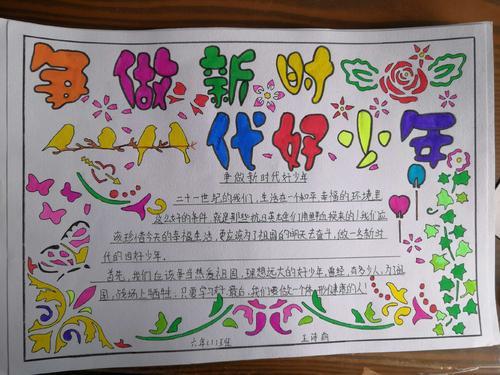 争做新时
代好少年
争做新时代好少年
二十一世纪的我们,生活在一个和平幸福的环境里
这么好的条件,就是那些抗日英雄们用鲜血换来的!我们应
该珍惜今天的幸福生活,更应该为了祖国的明天去奋斗,做一名新时
代的四好少年。
首先,我们应该争当热爱祖国,理想远大的好少年,曾经,有多少人,为了祖
国,战场上牺牲,只要学习好,最后,我们要做一个体形健康的人!
六年(1)班
王诗